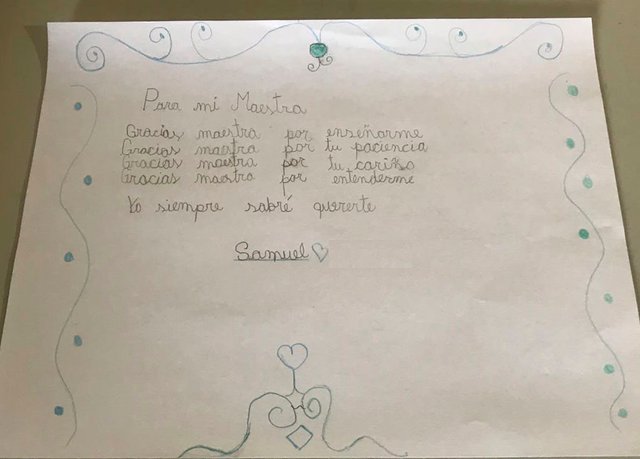 Para mi Maestra
Gracias maestra por enseñarme
Gracias maestra por tu paciencia
Gracias maestra por tu cariño
Gracias maestra por entenderme
Yo siempre sabré quererte
Samuel